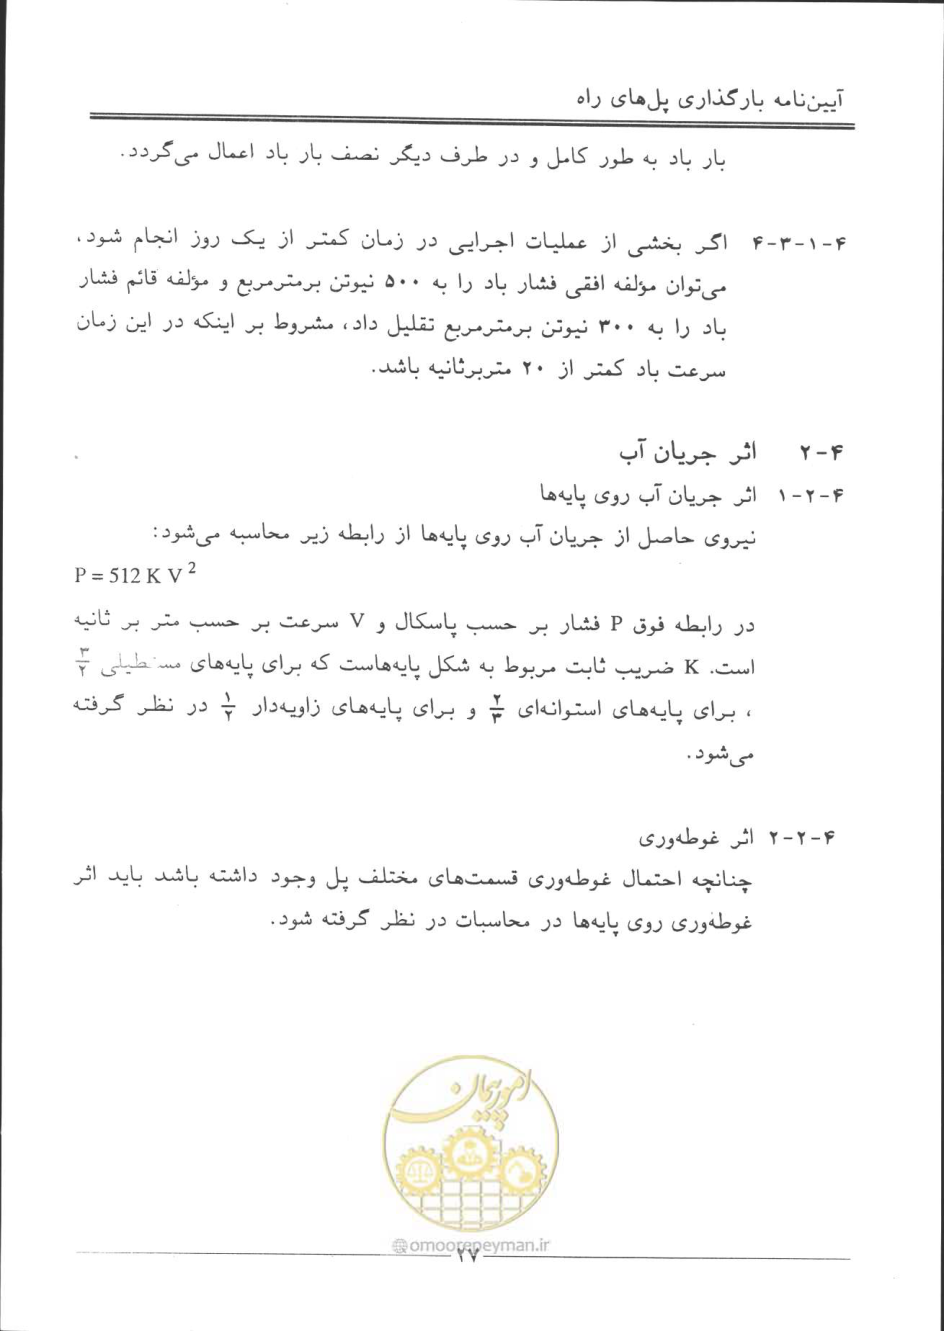 آیین‌نامه بارگذاری پل‌های راه
بار باد به طور کامل و در طرف دیگر نصف بار باد اعمال می‌گردد.
۴-۱-۳-۴ اگر بخشی از عملیات اجرایی در زمان کمتر از یک روز انجام شود،
می‌توان مؤلفه افقی فشار باد را به ۵۰۰ نیوتن برمترمربع و مؤلفه قائم فشار
باد را به ۳۰۰ نیوتن برمترمربع تقلیل داد، مشروط بر اینکه در این زمان
سرعت باد کمتر از ۲۰ متربرثانیه باشد.
۴-۲ اثر جریان آب
۴-۲-۱ اثر جریان آب روی پایه‌ها
نیروی حاصل از جریان آب روی پایه‌ها از رابطه زیر محاسبه می‌شود:
P = 512 K V²
در رابطه فوق P فشار بر حسب پاسکال و V سرعت بر حسب متر بر ثانیه
است. K ضریب ثابت مربوط به شکل پایه‌هاست که برای پایه‌های مستطیلی ۳/۲
، برای پایه‌های استوانه‌ای ۲/۳ و برای پایه‌های زاویه‌دار ۱/۲ در نظر گرفته
می‌شود.
۴-۲-۲ اثر غوطه‌وری
چنانچه احتمال غوطه‌وری قسمت‌های مختلف پل وجود داشته باشد باید اثر
غوطه‌وری روی پایه‌ها در محاسبات در نظر گرفته شود.
امور پیمان
@omoorepeyman.ir
۲۷